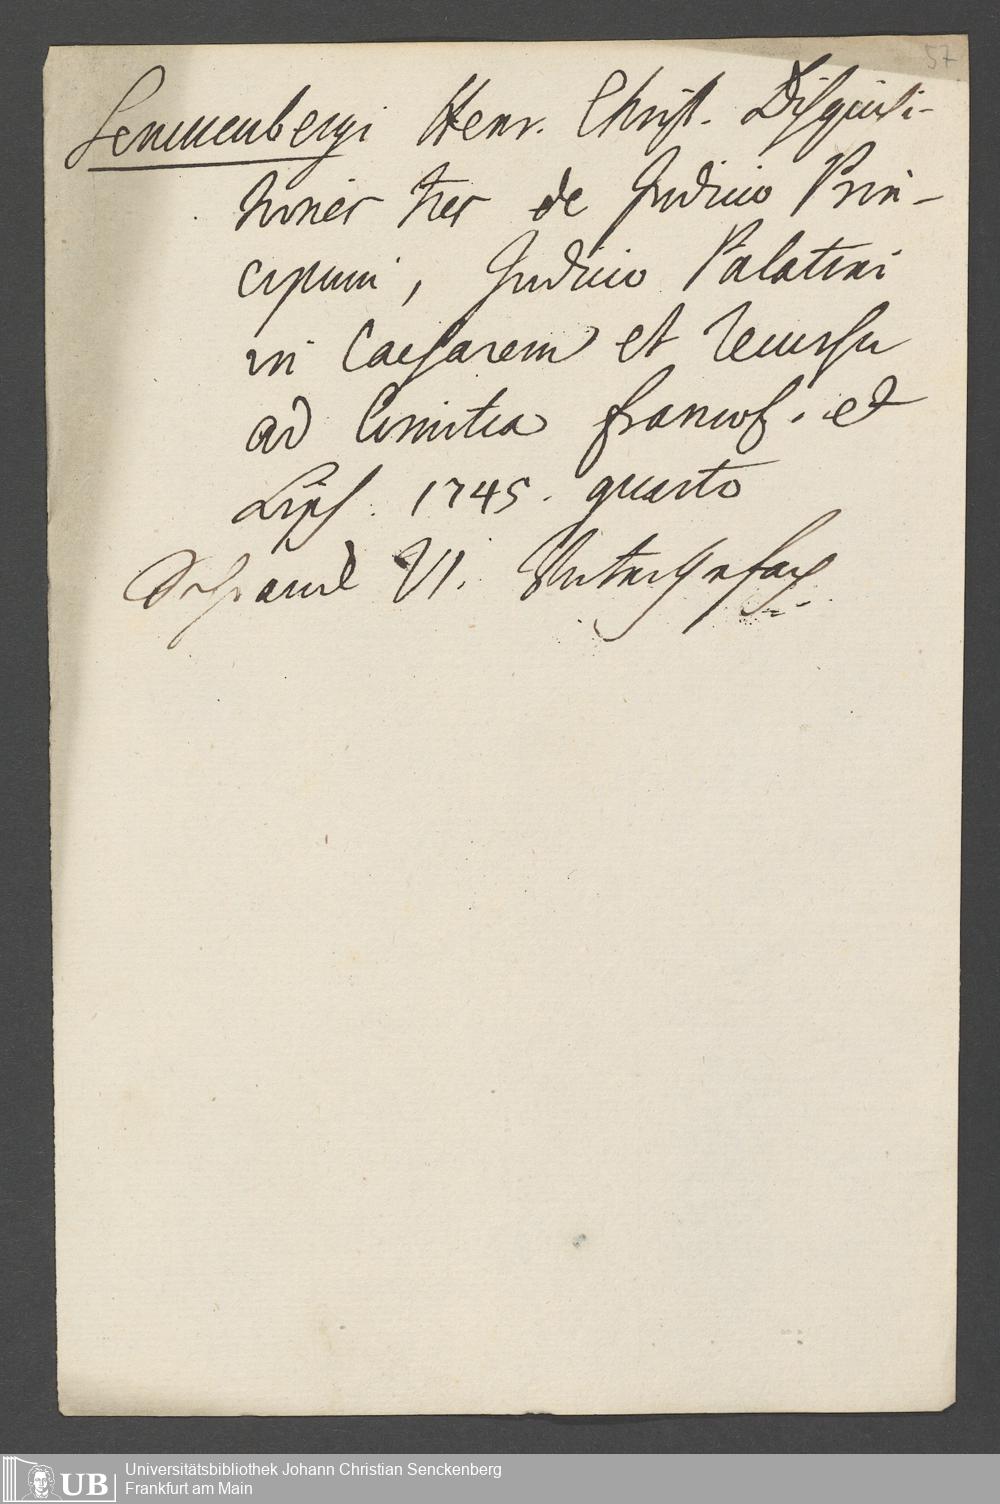 57
Senckenbergi Henr. Christ. Disquisi-
tiones tres de Judicio Prin-
cipum, Judicio Palatini
in Caesarem et recursu
ad Comitia francof. et
Lips. 1745. quarto
Schrank VI. Unterstes fach
UB
Universitätsbibliothek Johann Christian Senckenberg
Frankfurt am Main